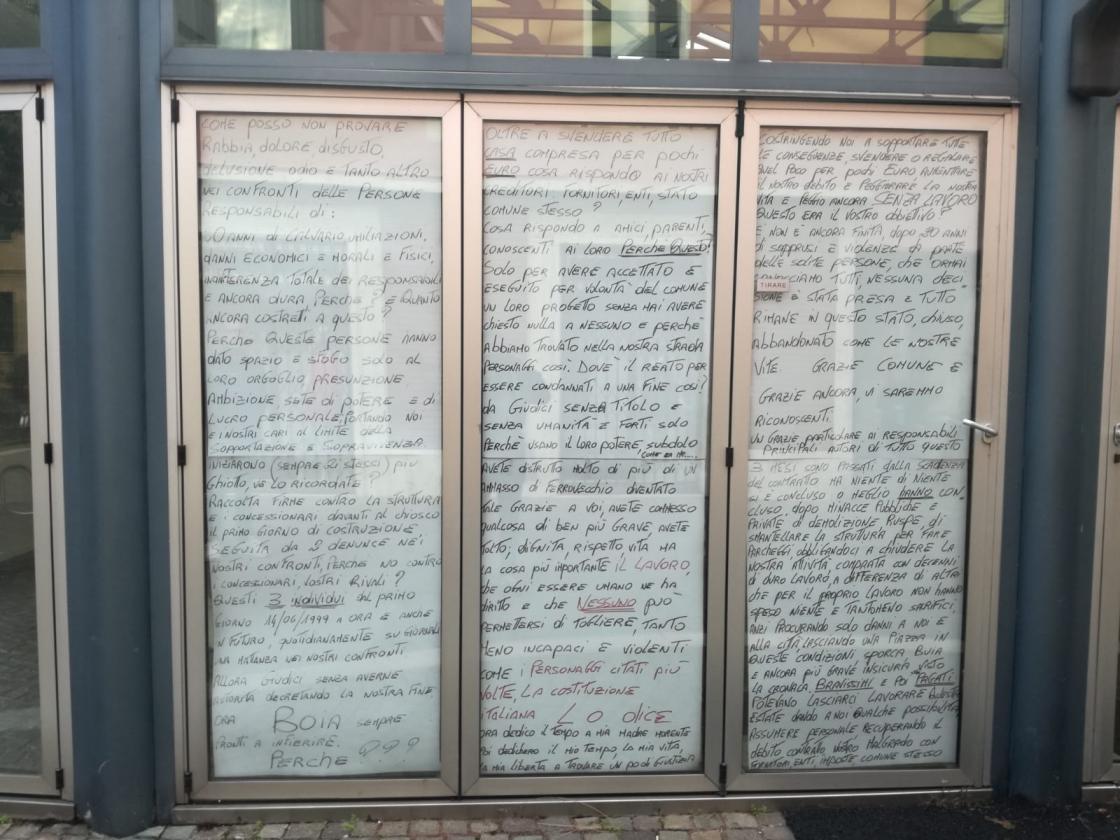 COME POSSO NON PROVARE
RABBIA, DOLORE, DISGUSTO,
DELUSIONE ODIO E TANTO ALTRO
NEI CONFRONTI DELLE PERSONE
RESPONSABILI DI:
20 ANNI DI CALVARIO, UMILIAZIONI,
DANNI ECONOMICI E MORALI E FISICI,
INDIFFERENZA TOTALE DEI RESPONSABILI
E ANCORA DURA, PERCHE? E QUANTO
ANCORA COSTRETI A QUESTO?
PERCHE QUESTE PERSONE HANNO
DATO SPAZIO E SFOGO SOLO AL
LORO ORGOGLIO, PRESUNZIONE
AMBIZIONE SETE DI POTERE E DI
LUCRO PERSONALE, PORTANDO NOI
E I NOSTRI CARI AL LIMITE DELLA
SOPPORTAZIONE E SOPRAVIVENZA.
INIZIARONO (SEMPRE GLI STESSI) PIU
GHIOTTO, VE LO RICORDATE?
RACCOLTA FIRME CONTRO LA STRUTTURA
E I CONCESSIONARI DAVANTI AL CHIOSCO
IL PRIMO GIORNO DI COSTRUZIONE
SEGUITA DA 2 DENUNCE NEI
NOSTRI CONFRONTI, PERCHE NO CONTRO
I CONCESSIONARI, VOSTRI RIVALI?
QUESTI 3 INDIVIDUI DAL PRIMO
GIORNO 14/06/1999 A ORA E ANCHE
IN FUTURO, QUOTIDIANAMENTE SU GIORNALI
UNA MATANZA NEI NOSTRI CONFRONTI
ALLORA GIUDICI SENZA AVERNE
AUTORITA DECRETANDO LA NOSTRA FINE
ORA BOIA SEMPRE
PRONTI A INFIERIRE.
PERCHE ???
OLTRE A SVENDERE TUTTO
CASA COMPRESA PER POCHI
EURO COSA RISPONDO AI NOSTRI
CREDITORI FORNITORI, ENTI, STATO
COMUNE STESSO?
COSA RISPONDO A AMICI, PARENTI,
CONOSCENTI AI LORO PERCHE QUESTO?
SOLO PER AVERE ACCETTATO E
ESEGUITO PER VOLONTÀ DEL COMUNE
UN LORO PROGETTO SENZA MAI AVERE
CHIESTO NULLA A NESSUNO E PERCHÈ
ABBIAMO TROVATO NELLA NOSTRA STRADA
PERSONAGGI COSÌ. DOV'È IL REATO PER
ESSERE CONDANNATI A UNA FINE COSÌ?
DA GIUDICI SENZA TITOLO E
SENZA UMANITÀ E FORTI SOLO
PERCHÈ USANO IL LORO POTERE, SUBDOLO
AVETE DISTRUTO MOLTO DI PIÙ DI UN
AMMASSO DI FERROVECCHIO DIVENTATO
TALE GRAZIE A VOI, AVETE COMMESSO
QUALCOSA DI BEN PIÙ GRAVE, AVETE
TOLTO, DIGNITÀ, RISPETTO, VITA MA
LA COSA PIÙ IMPORTANTE IL LAVORO,
CHE OGNI ESSERE UMANO NE HA
DIRITTO E CHE NESSUNO PUÒ
PERMETTERSI DI TOGLIERE, TANTO
MENO INCAPACI E VIOLENTI
COME I PERSONAGGI CITATI PIÙ
VOLTE, LA COSTITUZIONE
ITALIANA LO DICE
ORA DEDICO IL TEMPO A MIA MADRE MORENTE
POI DEDICHERO IL MIO TEMPO, LA MIA VITA,
LA MIA LIBERTA A TROVARE UN PO DI GIUSTIZIA
COSTRINGENDO NOI A SOPPORTARE TUTTE
LE CONSEGUENZE, SVENDERE O REGALARE
QUEL POCO PER POCHI EURO AUMENTARE
IL NOSTRO DEBITO E PEGGIORARE LA NOSTRA
VITA E PEGGIO ANCORA SENZA LAVORO
QUESTO ERA IL VOSTRO OBIETTIVO?
E NON È ANCORA FINITA, DOPO 20 ANNI
DI SOPPRUSI E VIOLENZE DI PARTE
DELLE SOLITE PERSONE, CHE ORMAI
CONOSCIAMO TUTTI, NESSUNA DECI
TIRARE
SIONE È STATA PRESA E TUTTO
RIMANE IN QUESTO STATO, CHIUSO,
ABBANDONATO COME LE NOSTRE
VITE. GRAZIE COMUNE E
GRAZIE ANCORA, VI SAREMMO
RICONOSCENTI.
UN GRAZIE PARTICOLARE AI RESPONSABILI
PRINCIPALI AUTORI DI TUTTO QUESTO
3 MESI SONO PASSATI DALLA SCADENZA
DEL CONTRATTO MA NIENTE DI NIENTE
SI È CONCLUSO O MEGLIO HANNO CON
CLUSO, DOPO MINACCE PUBBLICHE E
PRIVATE DI DEMOLIZIONE, RUSPE, DI
SMANTELLARE LA STRUTTURA PER FARE
PARCHEGGI OBBLIGANDOCI A CHIUDERE LA
NOSTRA ATTIVITÀ, COMPRATA CON DECENNI
DI DURO LAVORO, A DIFFERENZA DI ALTRI
CHE PER IL PROPRIO LAVORO NON HANNO
SPESO NIENTE E TANTOMENO SACRIFICI,
ANZI PROCURANDO SOLO DANNI A NOI E
ALLA CITTÀ, LASCIANDO UNA PIAZZA IN
QUESTE CONDIZIONI SPORCA BUIA
E ANCORA PIÙ GRAVE INSICURA VISTO
LA CRONACA, BRAVISSIMI E POI PAGATI
POTEVANO LASCIARCI LAVORARE QUESTA
ESTATE DANDO A NOI QUALCHE POSSIBILITÀ
ASSUMERE PERSONALE RECUPERANDO IL
DEBITO CONTRATO NOSTRO MALGRADO CON
FORNITORI, ENTI, IMPOSTE COMUNE STESSO